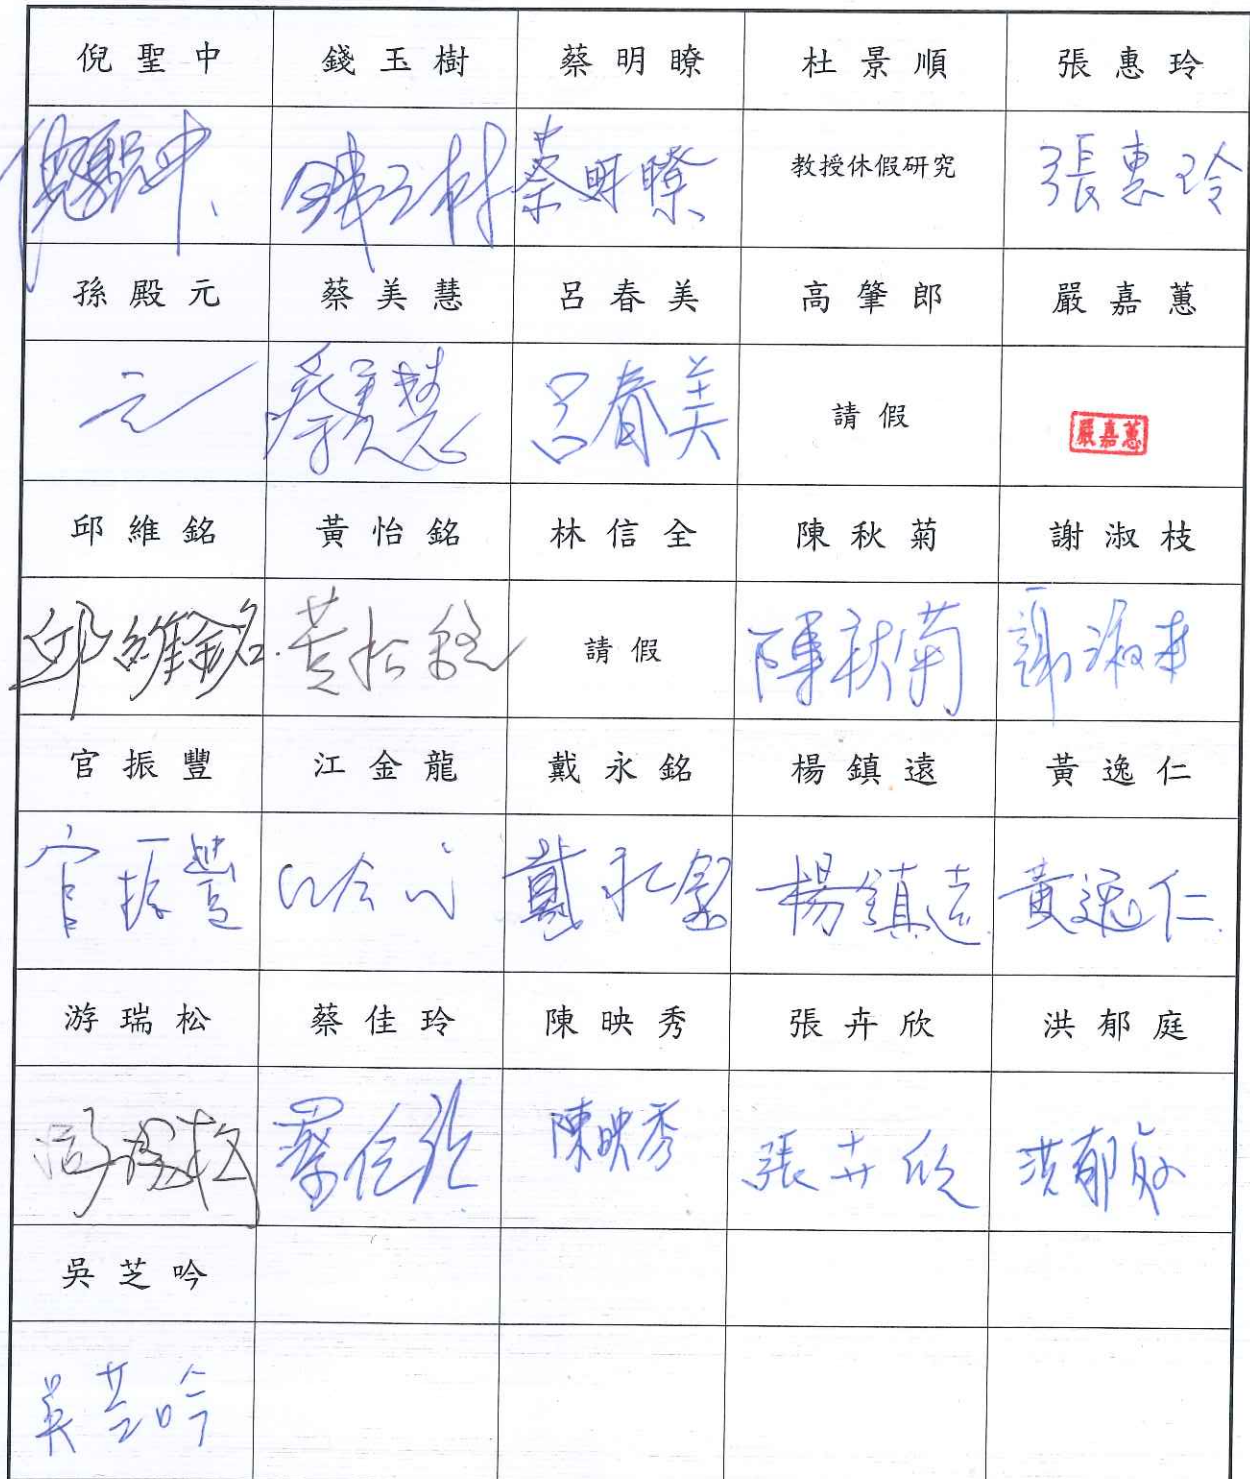 倪聖中 錢玉樹 蔡明瞭 杜景順 張惠玲
倪聖中 錢玉樹 蔡明瞭 教授休假研究 張惠玲
孫殿元 蔡美慧 呂春美 高肇郎 嚴嘉蕙
元 蔡美慧 呂春美 請假 嚴嘉蕙
邱維銘 黃怡銘 林信全 陳秋菊 謝淑枝
邱維銘 黃怡銘 請假 陳秋菊 謝淑枝
官振豐 江金龍 戴永銘 楊鎮遠 黃逸仁
官振豐 戴永銘 楊鎮遠 黃逸仁
游瑞松 蔡佳玲 陳映秀 張卉欣 洪郁庭
游瑞松 蔡佳玲 陳映秀 張卉欣 洪郁庭
吳芝吟
吳芝吟